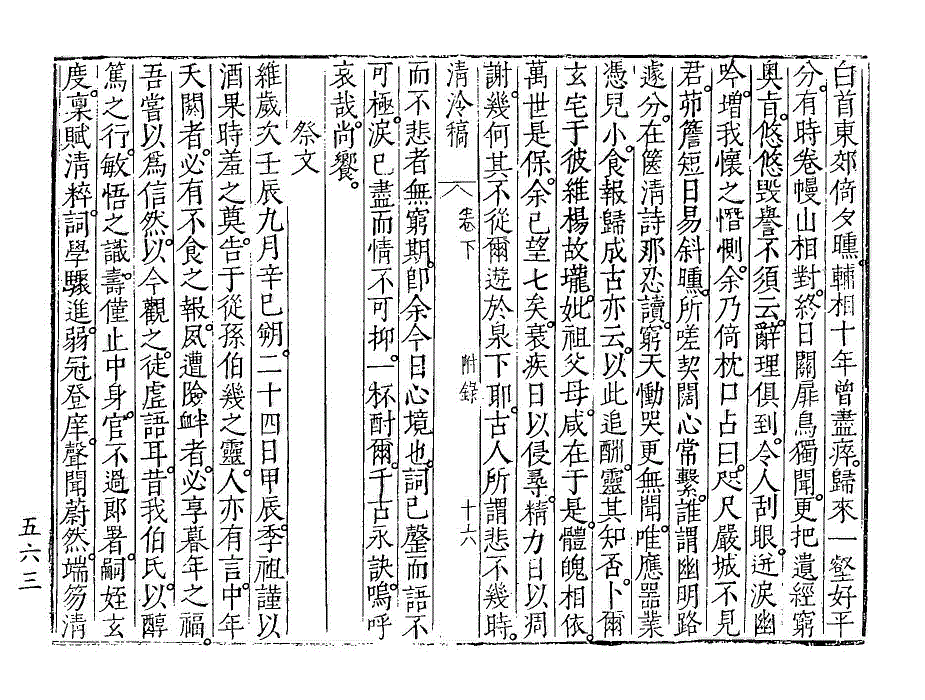 白首東郊倚夕曛。輔相十年曾盡瘁。歸來一壑好平
分。有時卷幔山相對。終日關扉鳥獨聞。更把遺經窮
奧旨。悠悠毀譽不須云。辭理俱到。令人刮眼。迸淚幽
吟。增我懷之憯惻。余乃倚枕口占曰。咫尺嚴城不見
君。茆簷短日易斜曛。所嗟契闊心常繫。誰謂幽明路
遽分。在篋淸詩那忍讀。窮天慟哭更無聞。唯應器業
憑兒小。食報歸成古亦云。以此追酬。靈其知否。卜爾
玄宅于彼維楊故壠。妣祖父母。咸在于是。體魄相依。
萬世是保。余已望七矣。衰疾日以侵尋。精力日以凋
謝。幾何其不從爾遊於泉下耶。古人所謂悲不幾時。
淸冷稿　卷下　附錄　十六
而不悲者無窮期。卽余今日心境也。詞已罄而語不
可極。淚已盡而情不可抑。一杯酎爾。千古永訣。嗚呼
哀哉。尚饗。
祭文
維歲次壬辰九月辛巳朔。二十四日甲辰。季祖謹以
酒果時羞之奠。告于從孫伯幾之靈。人亦有言。中年
夭閼者。必有不食之報。夙遭險釁者。必享暮年之福。
吾嘗以爲信然。以今觀之。徒虛語耳。昔我伯氏。以醇
篤之行。敏悟之識。壽僅止中身。官不過郞署。嗣姪玄
度。稟賦淸粹。詞學驟進。弱冠登庠。聲聞蔚然。端笏淸
五六三